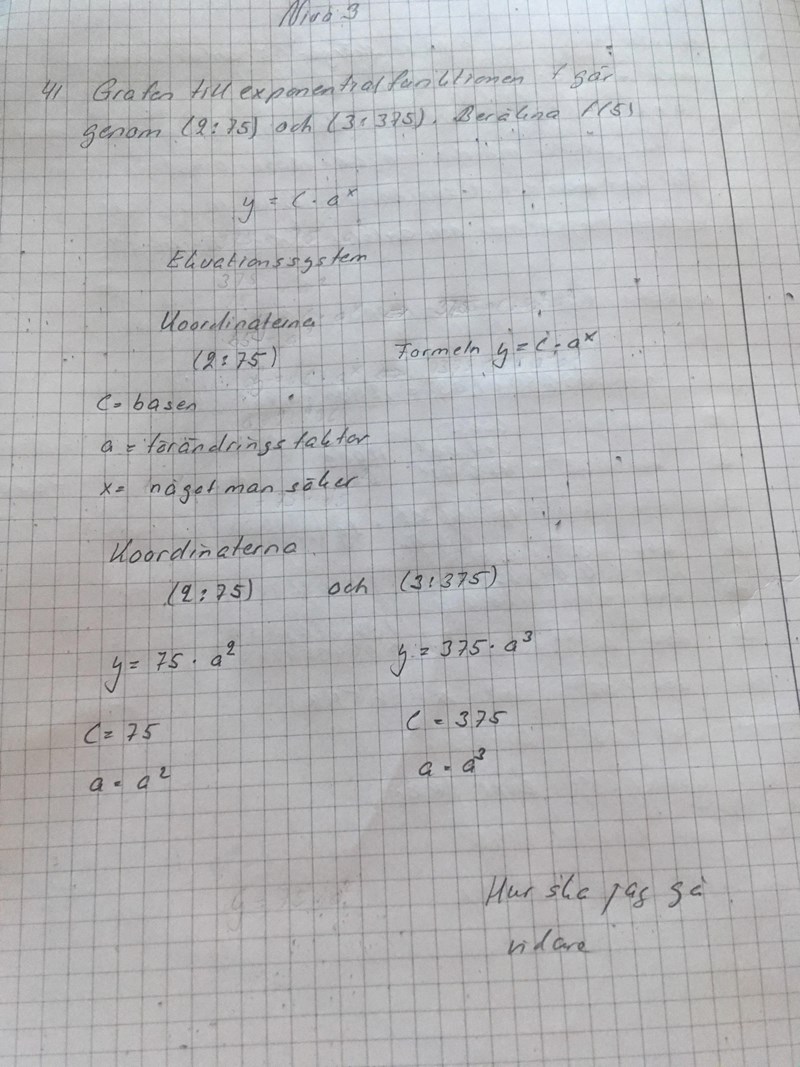 Nivå 3
41 Grafen till exponentialfunktionen f går
genom (2:75) och (3:375). Beräkna f(5)
y = C · a^x
Ekvationssystem
Koordinaterna
(2:75) Formeln y = C · a^x
C = basen
a = förändringsfaktor
x = något man söker
Koordinaterna
(2:75) och (3:375)
y = 75 · a² y = 375 · a³
C = 75 C = 375
a = a² a = a³
Hur ska jag gå
vidare